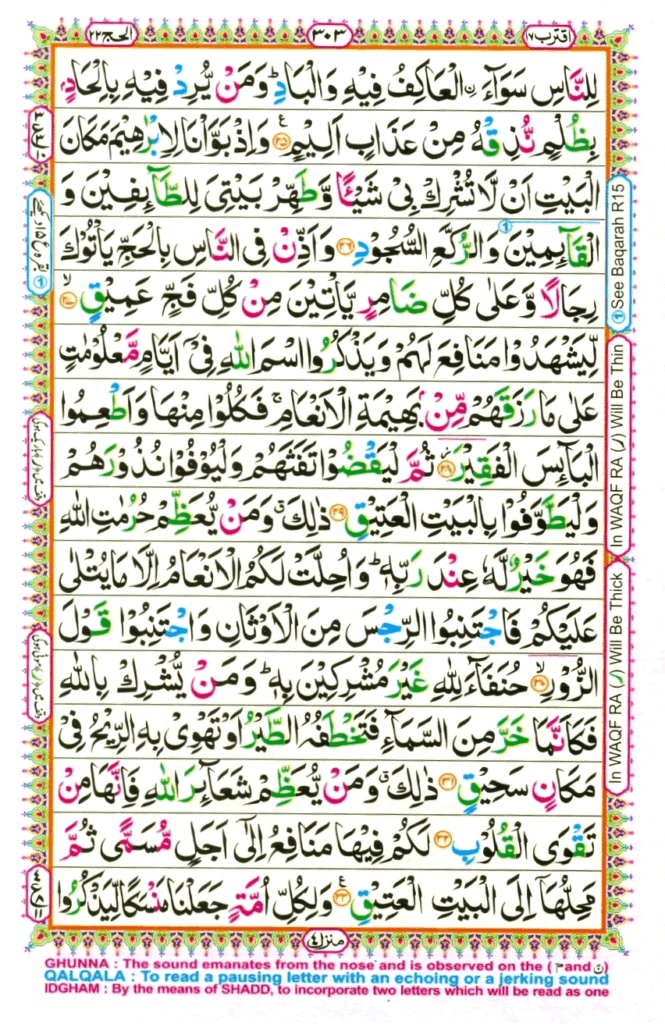 اقترب ١٧
٣٠٣
الحج ٢٢
لِلنَّاسِ سَوَآءَ ۨ الْعَاكِفُ فِيْهِ وَالْبَادِ ؕ وَمَنْ يُّرِدْ فِيْهِ بِاِلْحَادٍۭ
بِظُلْمٍ نُّذِقْهُ مِنْ عَذَابٍ اَلِيْمٍ ۚ ﴿۲۵﴾ وَاِذْ بَوَّاْنَا لِاِبْرٰهِيْمَ مَكَانَ
الْبَيْتِ اَنْ لَّا تُشْرِكْ بِيْ شَيْـًٔا وَّطَهِّرْ بَيْتِيَ لِلطَّآئِفِيْنَ وَ
الْقَآئِمِيْنَ وَالرُّكَّعِ السُّجُوْدِ ﴿۲۶﴾ وَاَذِّنْ فِي النَّاسِ بِالْحَجِّ يَاْتُوْكَ
رِجَالًا وَّعَلٰى كُلِّ ضَامِرٍ يَّاْتِيْنَ مِنْ كُلِّ فَجٍّ عَمِيْقٍ ۙ ﴿۲۷﴾
لِّيَشْهَدُوْا مَنَافِعَ لَهُمْ وَيَذْكُرُوا اسْمَ اللّٰهِ فِيْۤ اَيَّامٍ مَّعْلُوْمٰتٍ
عَلٰى مَا رَزَقَهُمْ مِّنْۢ بَهِيْمَةِ الْاَنْعَامِ ۚ فَكُلُوْا مِنْهَا وَاَطْعِمُوا
الْبَآئِسَ الْفَقِيْرَ ﴿۲۸﴾ ثُمَّ لْيَقْضُوْا تَفَثَهُمْ وَلْيُوْفُوْا نُذُوْرَهُمْ
وَلْيَطَّوَّفُوْا بِالْبَيْتِ الْعَتِيْقِ ﴿۲۹﴾ ذٰلِكَ ۗ وَمَنْ يُّعَظِّمْ حُرُمٰتِ اللّٰهِ
فَهُوَ خَيْرٌ لَّهٗ عِنْدَ رَبِّهٖ ؕ وَاُحِلَّتْ لَكُمُ الْاَنْعَامُ اِلَّا مَا يُتْلٰى
عَلَيْكُمْ فَاجْتَنِبُوا الرِّجْسَ مِنَ الْاَوْثَانِ وَاجْتَنِبُوْا قَوْلَ
الزُّوْرِ ۙ ﴿۳۰﴾ حُنَفَآءَ لِلّٰهِ غَيْرَ مُشْرِكِيْنَ بِهٖ ؕ وَمَنْ يُّشْرِكْ بِاللّٰهِ
فَكَاَنَّمَا خَرَّ مِنَ السَّمَآءِ فَتَخْطَفُهُ الطَّيْرُ اَوْ تَهْوِيْ بِهِ الرِّيْحُ فِيْ
مَكَانٍ سَحِيْقٍ ﴿۳۱﴾ ذٰلِكَ ۗ وَمَنْ يُّعَظِّمْ شَعَآئِرَ اللّٰهِ فَاِنَّهَا مِنْ
تَقْوَى الْقُلُوْبِ ﴿۳۲﴾ لَكُمْ فِيْهَا مَنَافِعُ اِلٰٓى اَجَلٍ مُّسَمًّى ثُمَّ
مَحِلُّهَاۤ اِلَى الْبَيْتِ الْعَتِيْقِ ۚ ﴿۳۳﴾ وَلِكُلِّ اُمَّةٍ جَعَلْنَا مَنْسَكًا لِّيَذْكُرُوا
① See Baqarah R15
In WAQF RA (ر) Will Be Thin
In WAQF RA (ر) Will Be Thick
منزل ٤
GHUNNA : The sound emanates from the nose and is observed on the ( م and ن)
QALQALA : To read a pausing letter with an echoing or a jerking sound
IDGHAM : By the means of SHADD, to incorporate two letters which will be read as one